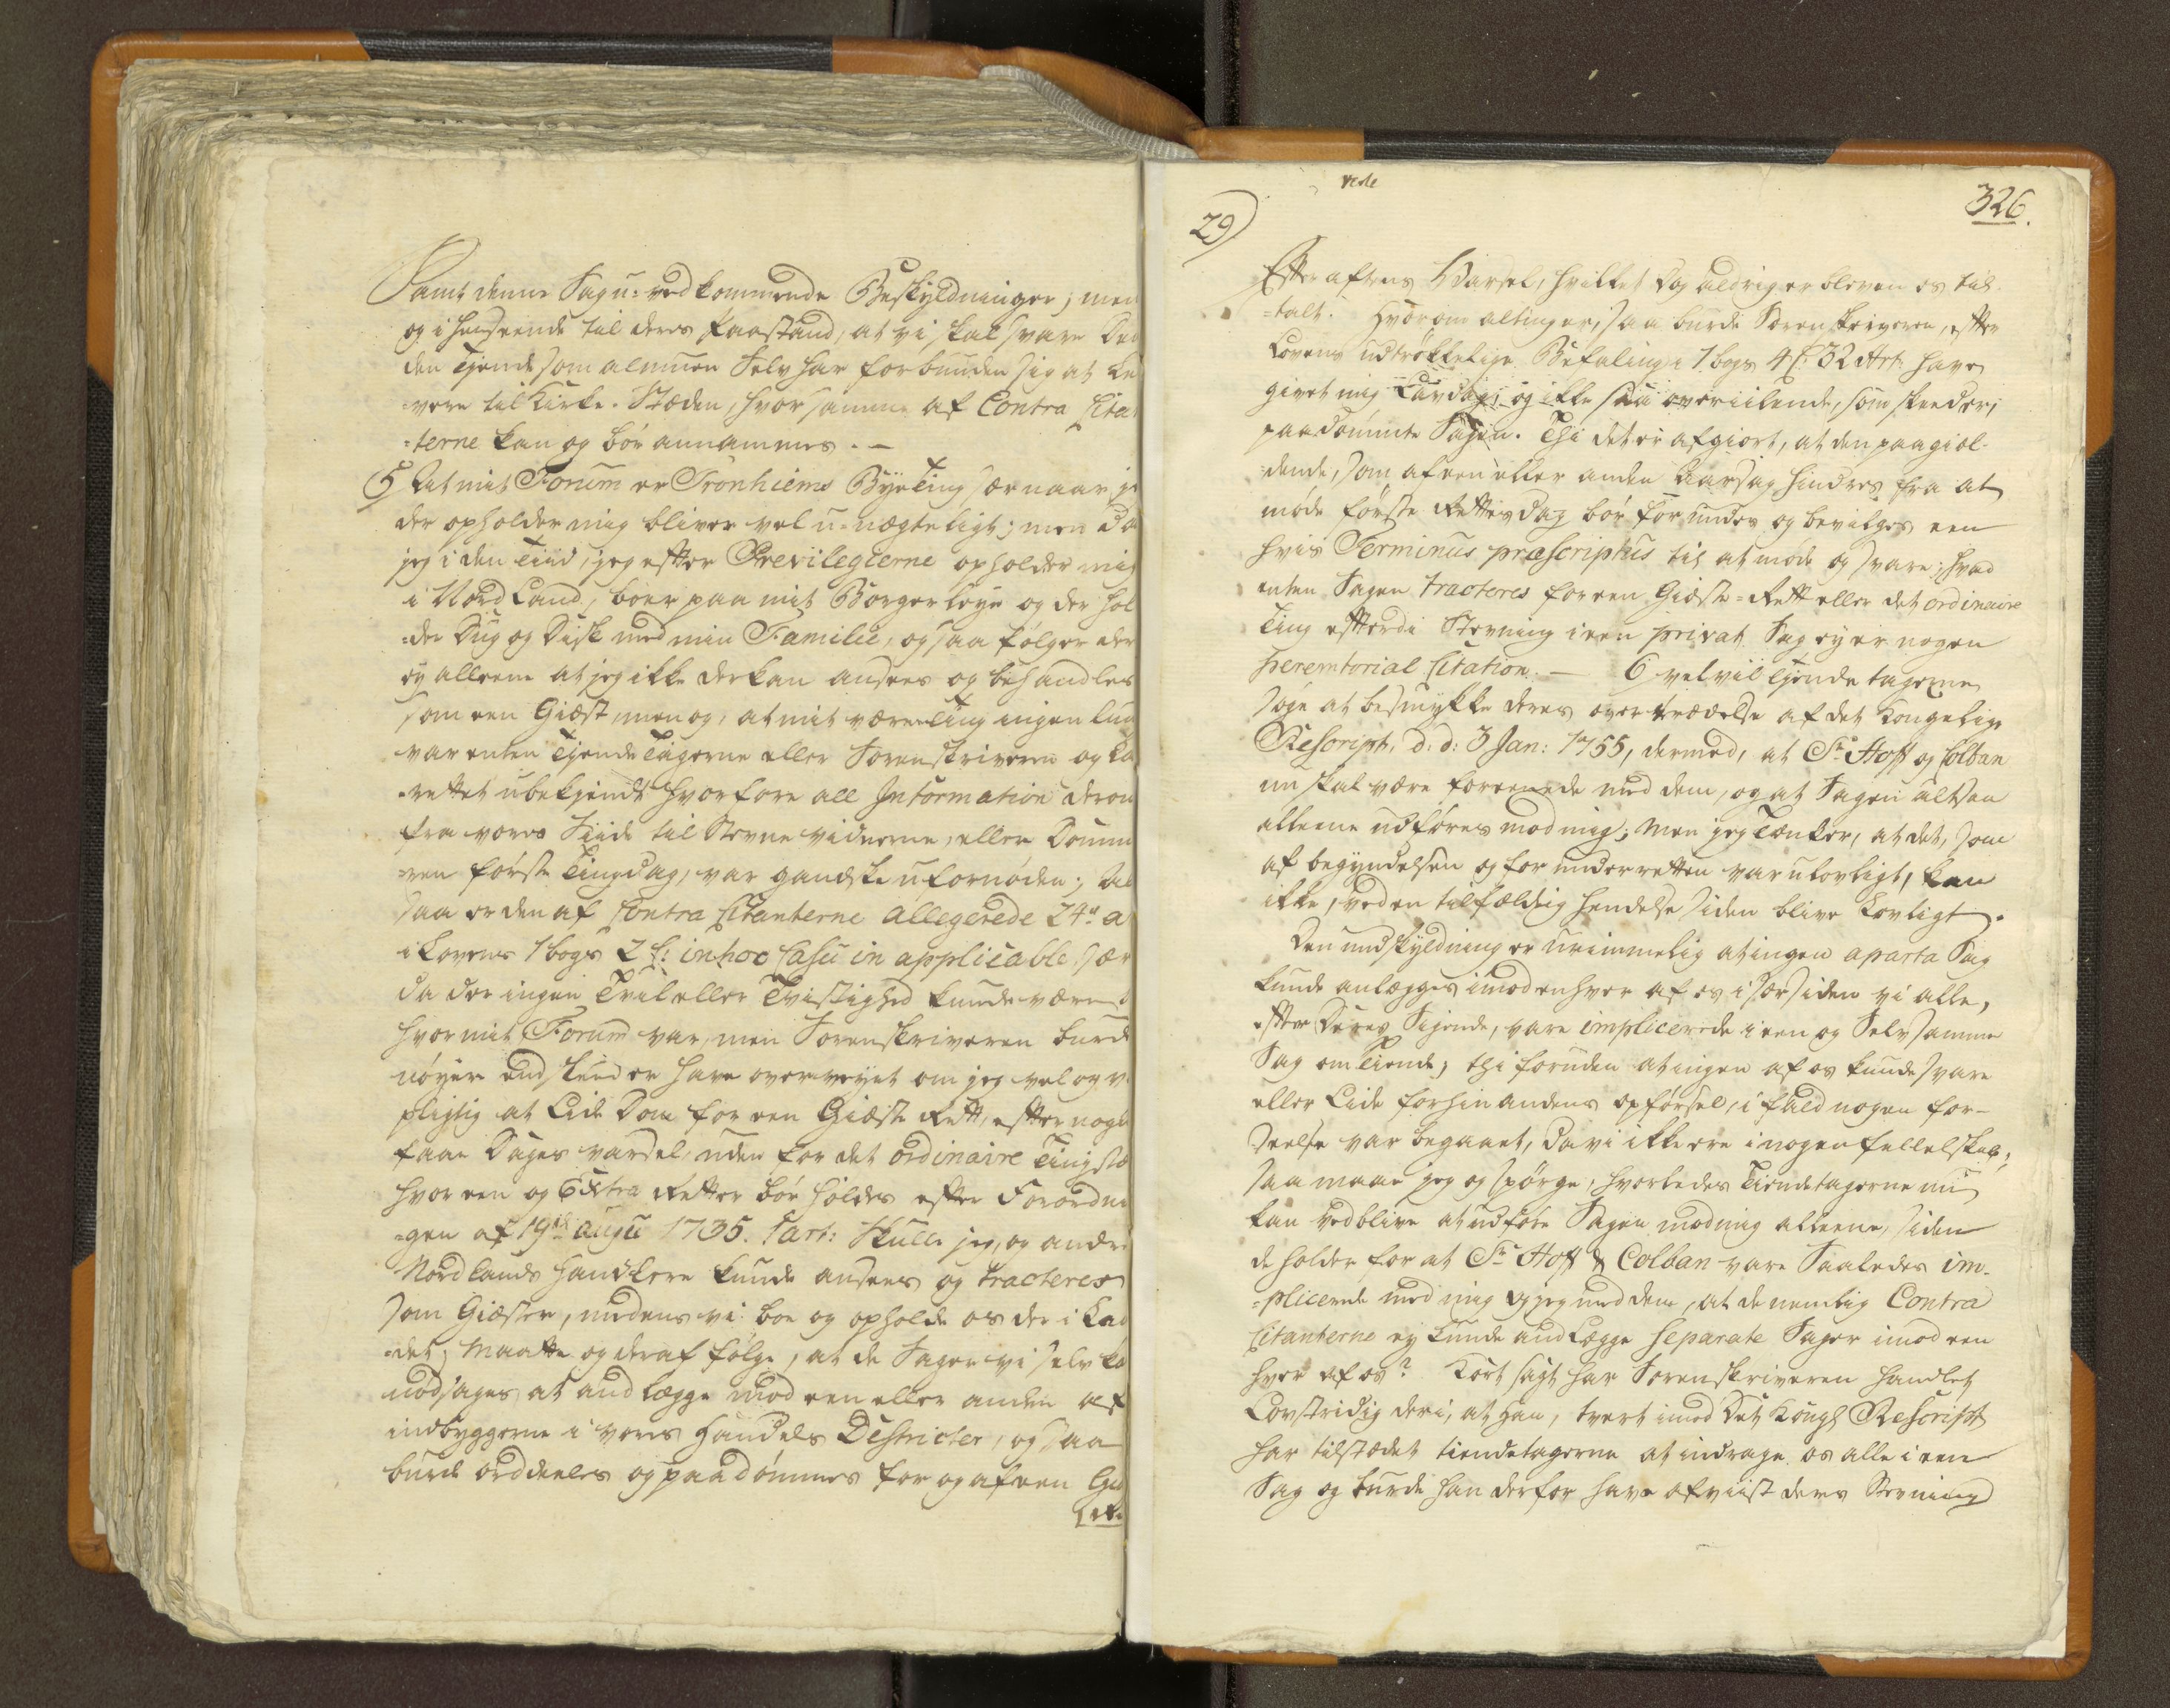 Samt denne Sag u-vedkommende Beskyldninger; men
og i henseende til deres Paastand, at vi skal svare
den Tjende som almuen Selv har forbunden sig at le
=vere til Kirke-Stæden, hvor samme af Contra Cita
=terne kan og bør annammes. —
5 At mit Forum er Tronhiems Bye Ting sær naar je
der opholder mig bliver vel u-nægteligt; men da
jeg i den Tiid, jeg efter Previlegierne opholder mig
i Nord Land, boer paa mit Borgerleye og der hol
=der Dug og Disk med min Familie, og saa følger der
ey alleene at jeg ikke der kan ansees og behandles
som een Giæst, men og, at mit værne Ting ingenlun
var enten Tjende Tagerne eller Sorenskriveren og La
=rettet ubekjendt hvorfore all Information derom
fra vores Siide til Stevnevidnerne, eller Domme
=ren første Tingdag, var gandske ufornøden;
saa er den af Contra Citanterne allegerede 24de a
i Lovens 1 bogs 2 C: in hoc Casu in applicable, sær
da der ingen Tvil eller Tvistighed kunde være
hvor mit Forum var, men Sorenskriveren burde
nøyere end skeed er have overveyet om jeg vel og v
pligtig at Lide Dom for een Giæste Rett, efter nogle
faae Dages varsel, uden for det ordinaire Tingstæ
hvor een og Extra Retter bør holdes efter Forordni
=gen af 19de augu 1735. 1 art: Skulle jeg, og andre
Nordlands Handlere kunde ansees og tracteres
som Giæster, medens vi boe og opholde os der i Lan
=det, Maatte og deraf følge, at de Sager vi selv ka
nødsages at anlægge mod een eller anden af
indbyggerne i vores Handels Destricter, og saa
burde orddeeles og paadømmes for og af een Giæ
Rett.
vide
29)
326.
Efter aftens Varsel, hvilket dog aldrig er bleven os til-
=talt. Hvorom alting er, saa burde Sorenskriveren, efter
Lovens udtrøkkelige Befaling i 1 bogs 4 C: 32 Art: have
givet mig Laudag, og ikke saa overiilende, som skeed er,
paadømmte Sagen. Thi det er afgiort, at den paagiæl-
=dende, som af een eller anden Aarsag hindres fra at
møde første Rettesdag bør forundes og bevilges een
hvis Terminus præscriptus til at møde og svare; hvad
enten Sagen tracteres for een Giæste-Rett eller det ordinaire
Ting efterdi Stevning i een privat Sag ey er nogen
peremtorial Citation. — 6 vel vil Tjende tagerne
søge at besmykke deres overtrædelse af det Kongelige
Rescript, d: d: 3 Jan: 1755, dermed, at Sr Hoff og Colban
nu skal være foreenede med dem, og at Sagen altsaa
alleene udføres mod mig; Men jeg Tænker, at det, som
af begyndelsen og for underretten var ulovligt, kan
ikke, ved en tilfældig hendelse siden blive Lovligt.
Den undskyldning er urimmelig at ingen aparta Sag
kunde anlægges imod enhver af os i sær siden vi alle,
efter Deres Sigende, vare implicerede i een og Selv Samme
Sag om Tiende; thi foruden at ingen af os kunde svare
eller Lide for hin andens opførsel, i fald nogen for-
seelse var begaaet, da vi ikke ere i nogen fellelskab;
saa maae jeg og spørge, hvorledes Tiendetagerne nu
kan vedblive at udføre Sagen mod mig alleene, siden
de holder for at Sr Hoff & Colban vare Saaledes im-
=plicerede med mig og jeg med dem, at de nemlig Contra
Citanterne ey kunde andlægge separate Sager imod een
hver af os? Kort sagt har Sorenskriveren handlet
Lovstridig deri, at han, tvert imod Det Kongl Rescript
har tilstædet tiendetagerne at indrage os alle i een
Sag og burde han derfor have afviist deres Stevning